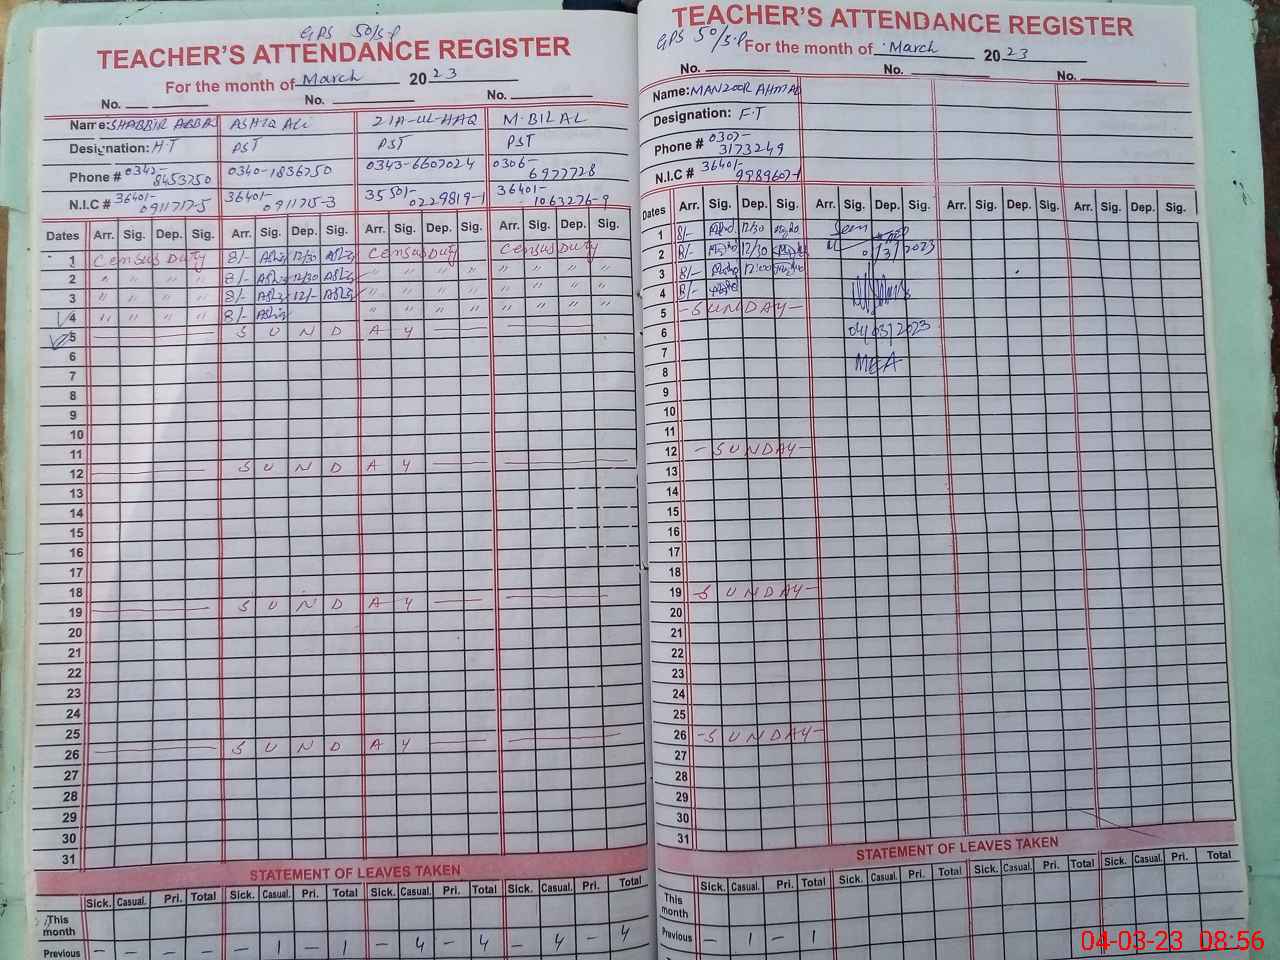 GPS 50/S.P
TEACHER'S ATTENDANCE REGISTER
For the month of March 2023
No. No. No.
Name: SHABBIR ABBAS ASHIQ ALI ZIA-UL-HAQ M.BILAL
Designation: H.T PST PST PST
Phone # 0342-8453750 0340-1836750 0343-6607024 0306-6977728
N.I.C # 36401-0911717-5 36401-0911715-3 35501-0229819-1 36401-1063276-9
Dates Arr. Sig. Dep. Sig. Arr. Sig. Dep. Sig. Arr. Sig. Dep. Sig. Arr. Sig. Dep. Sig.
1 Census Duty 8/- Ashiq 12/30 Ashiq Census Duty Census Duty
2 " " " " 8/- Ashiq 12/30 Ashiq " " " " " " " "
3 " " " " 8/- Ashiq 12/- Ashiq " " " " " " " "
4 " " " " 8/- Ashiq " " " " " " " "
5 S U N D A Y
6
7
8
9
10
11
12 S U N D A Y
13
14
15
16
17
18
19 S U N D A Y
20
21
22
23
24
25
26 S U N D A Y
27
28
29
30
31
STATEMENT OF LEAVES TAKEN
Sick. Casual. Pri. Total Sick. Casual. Pri. Total Sick. Casual. Pri. Total Sick. Casual. Pri. Total
This month
Previous - - - - - 1 - 1 - 4 - 4 - 4 - 4
TEACHER'S ATTENDANCE REGISTER
GPS 50/S.P For the month of March 2023
No. No. No.
Name: MANZOOR AHMAD
Designation: F.T
Phone # 0307-3173249
N.I.C # 36401-9989607-1
Dates Arr. Sig. Dep. Sig. Arr. Sig. Dep. Sig. Arr. Sig. Dep. Sig. Arr. Sig. Dep. Sig.
1 8/- 12/30 Seen
2 8/- 12/30 01/3/2023
3 8/- 12:00
4 8/-
5 - SUNDAY -
6 04/03/2023
7 MEA
8
9
10
11
12 - SUNDAY -
13
14
15
16
17
18
19 - SUNDAY -
20
21
22
23
24
25
26 - SUNDAY -
27
28
29
30
31
STATEMENT OF LEAVES TAKEN
Sick. Casual. Pri. Total Sick. Casual. Pri. Total Sick. Casual. Pri. Total Sick. Casual. Pri. Total
This month
Previous - 1 - 1
04-03-23 08:56